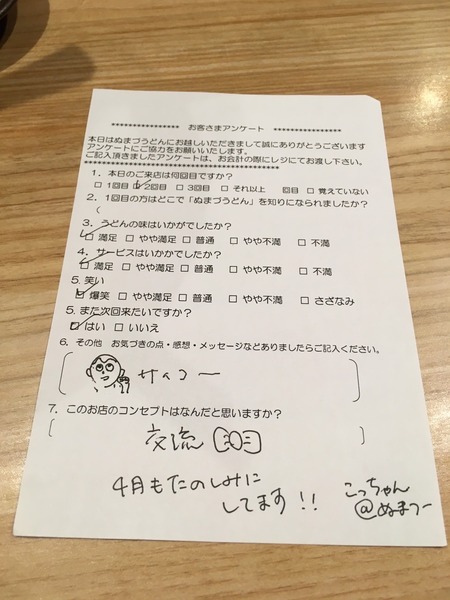 ****************** お客さまアンケート ******************
本日はぬまづうどんにお越しいただきまして誠にありがとうございます
アンケートにご協力をお願いいたします。
ご記入頂きましたアンケートは、お会計の際にレジにてお渡し下さい。
1．本日のご来店は何回目ですか？
□ 1回目 ☑ 2回目 □ 3回目 □ それ以上 回目 □ 覚えていない
2．1回目の方はどこで「ぬまづうどん」を知りになられましたか？
（
3．うどんの味はいかがでしたか？
☑ 満足 □ やや満足 □ 普通 □ やや不満 □ 不満
4．サービスはいかかでしたか？
☑ 満足 □ やや満足 □ 普通 □ やや不満 □ 不満
5．笑い
☑ 爆笑 □ やや満足 □ 普通 □ やや不満 □ さざなみ
5．また次回来たいですか？
☑ はい □ いいえ
6．その他 お気づきの点・感想・メッセージなどありましたらご記入ください。
サイコー
7．このお店のコンセプトはなんだと思いますか？
交流
4月もたのしみに
してます!!
こっちゃん
@ぬまつー